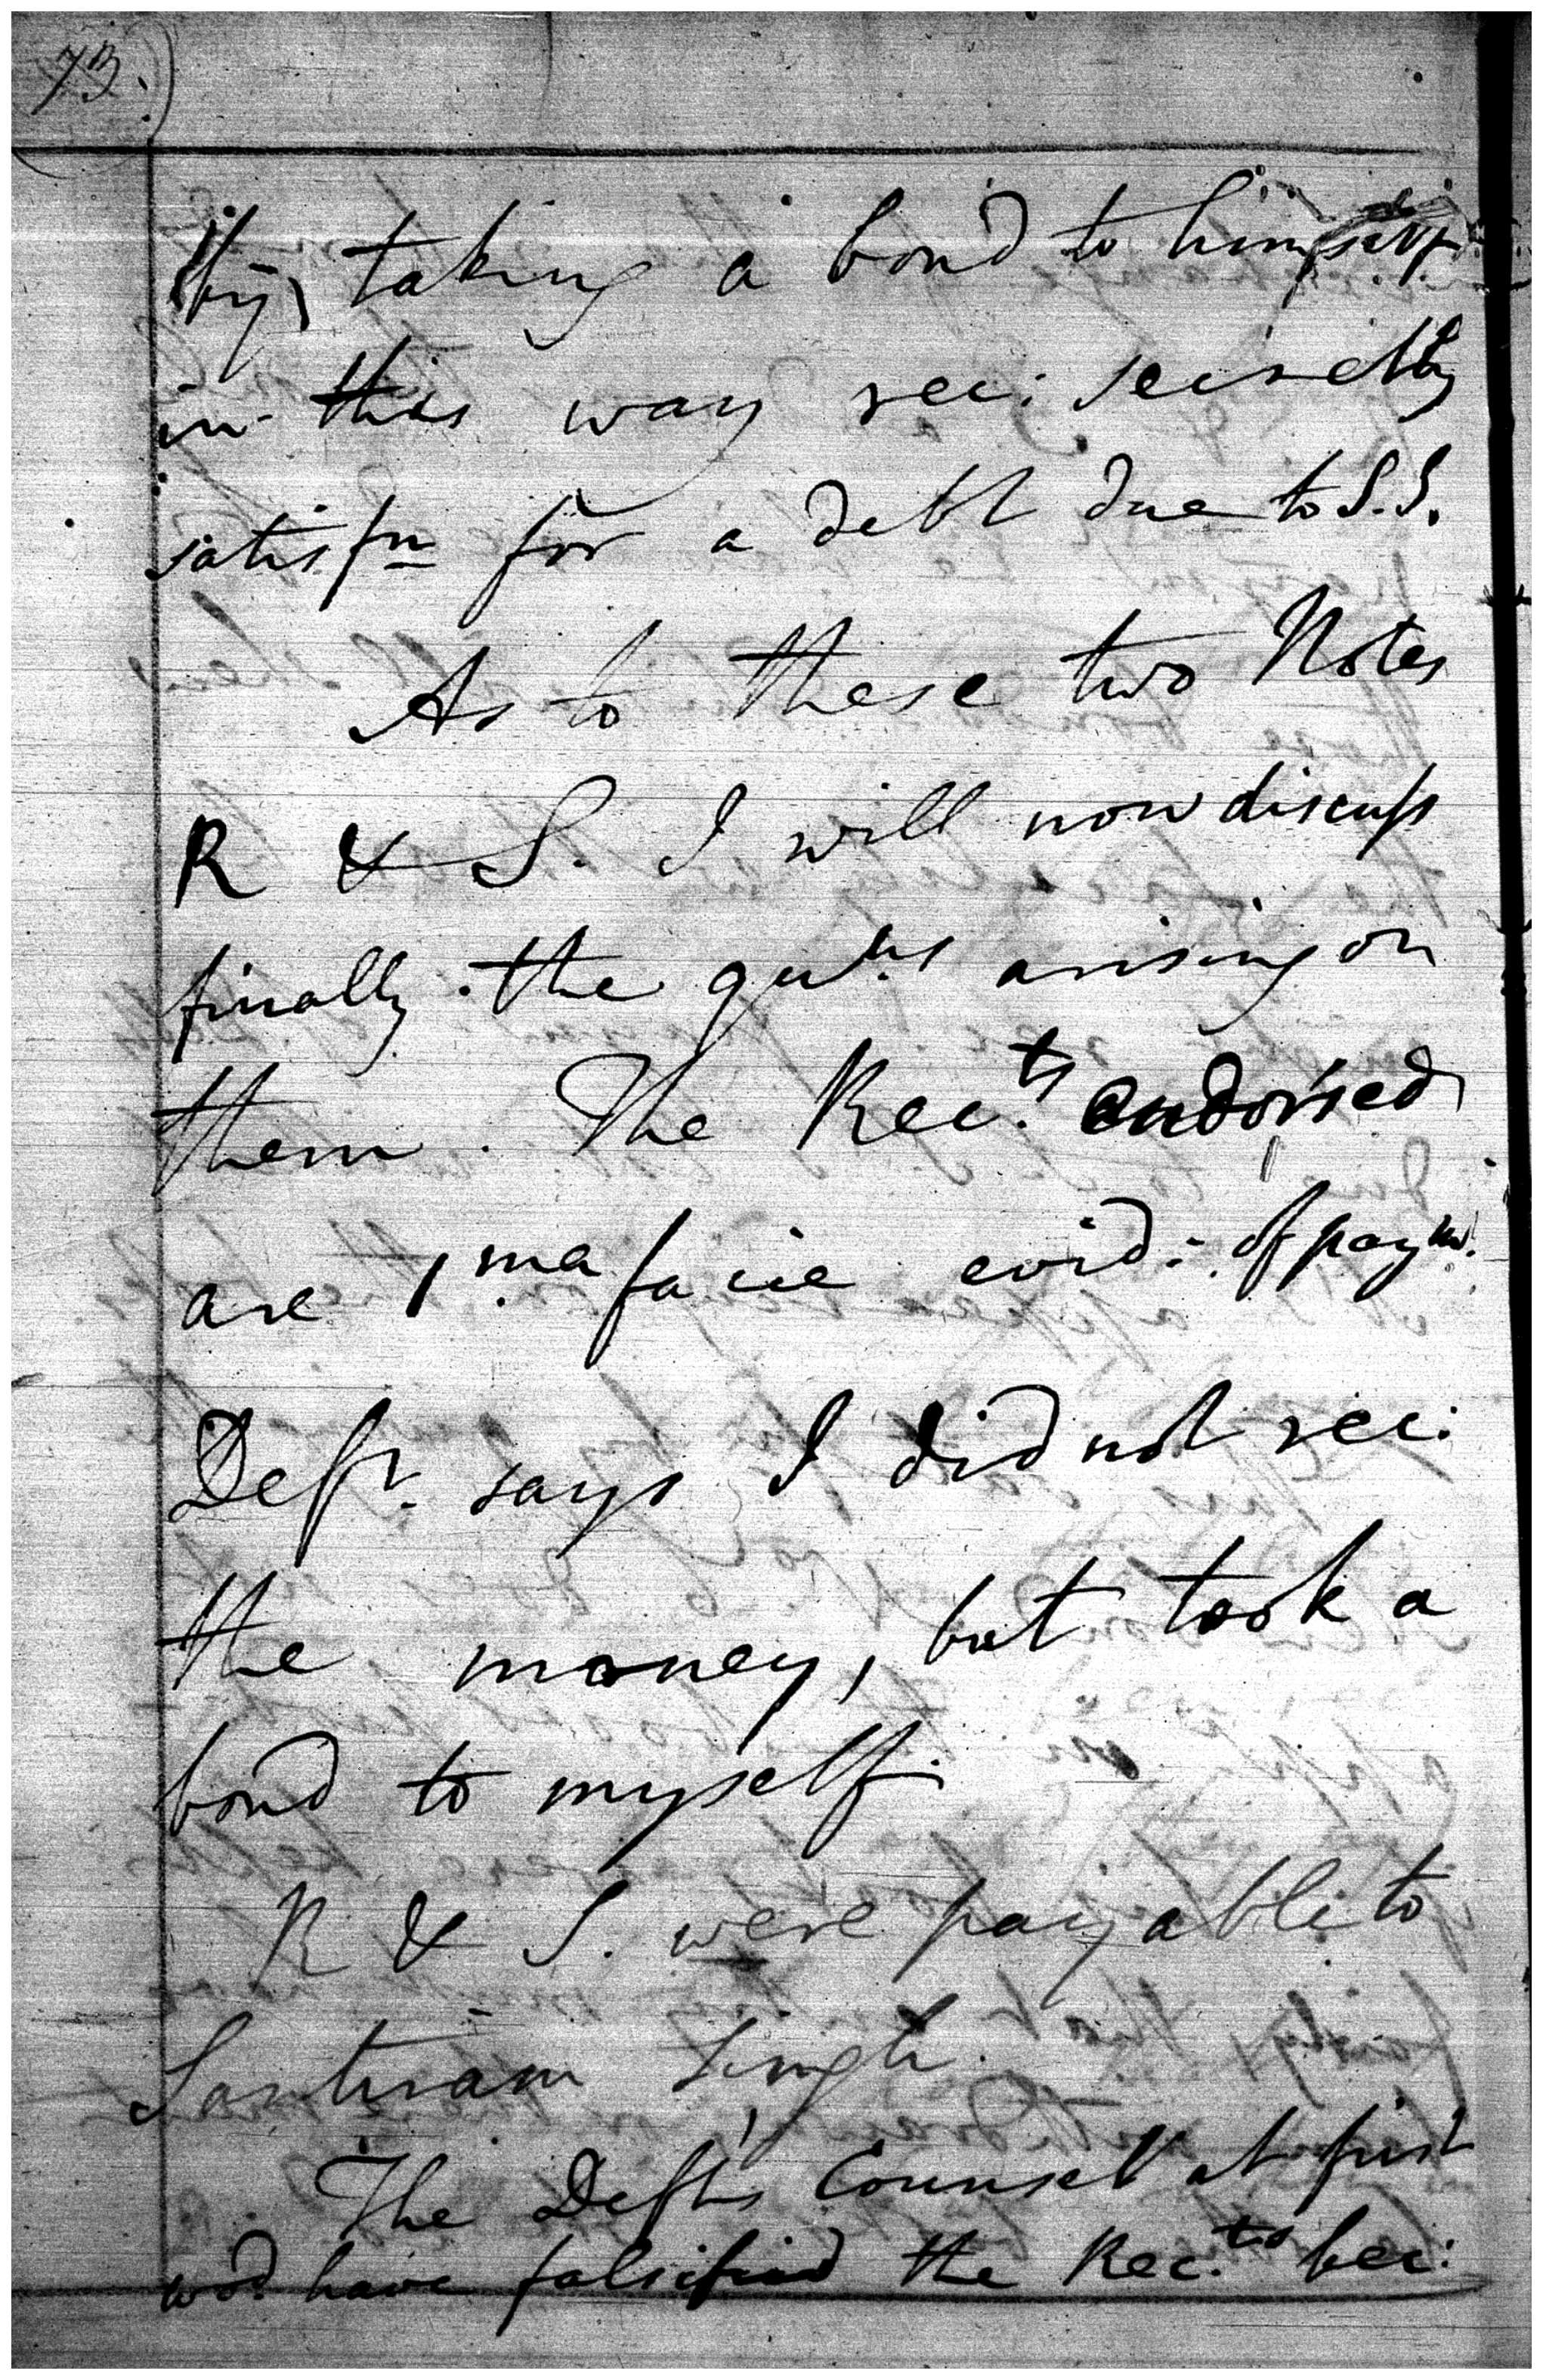 73.
by taking a bond to himself
in this way rec: secretly
satisfn for a debt due to S.S.
As to these two Notes
R & S. I will now discuss
finally the quns arising on
them. The Rec.ts endorsed
are 1.ma facie evid: of paym.
Deft. says I did not rec:
the money, but took a
bond to myself.
R & S. were payable to
Santiram Singh.
The Deft's Counsel at first
wod. have falsified the Rec.ts bec: